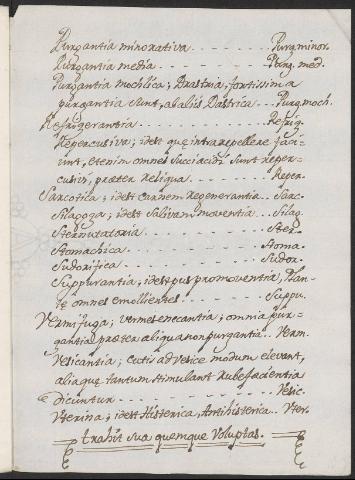 Purgantia minorativa - - - - - - Purg. minor.
Purgantia media - - - - - - Purg. med.
Purgantia mochlica; Drastica, fortissima
purgantia sunt, ab aliis Dastrica - - Purg. moch.
Refrigerantia - - - - - - Refrig.
Repercusiva; idest quę intra repellere faci-
unt, etenim omnes succi acidi sunt reper-
cusivi, pręter reliqua - - - - Reper.
Sarcotica; idest carnem regenerantia - - Sarc
Silagoga; idest Salivam moventia - - Silag.
Sternutatoria - - - - - - Ster.
Stomachica - - - - - - Stoma.
Sudorifica - - - - - - Sudor.
Suppurantia, idest pus promoventia, Plan-
tę omnes emollientes - - - - Suppu.
Vermifuga; vermes enecantia; omnia pur-
gantia pręter aliqua non purgantia - - Verm.
Vesicantia; cutis ad vesicę modum elevent,
aliaque tantum stimulant Rubefacientia
dicuntur - - - - - - Vesic.
Vterina; idest Histerica, Antihisterica - - Vter.
trahit sua quemque Voluptas.